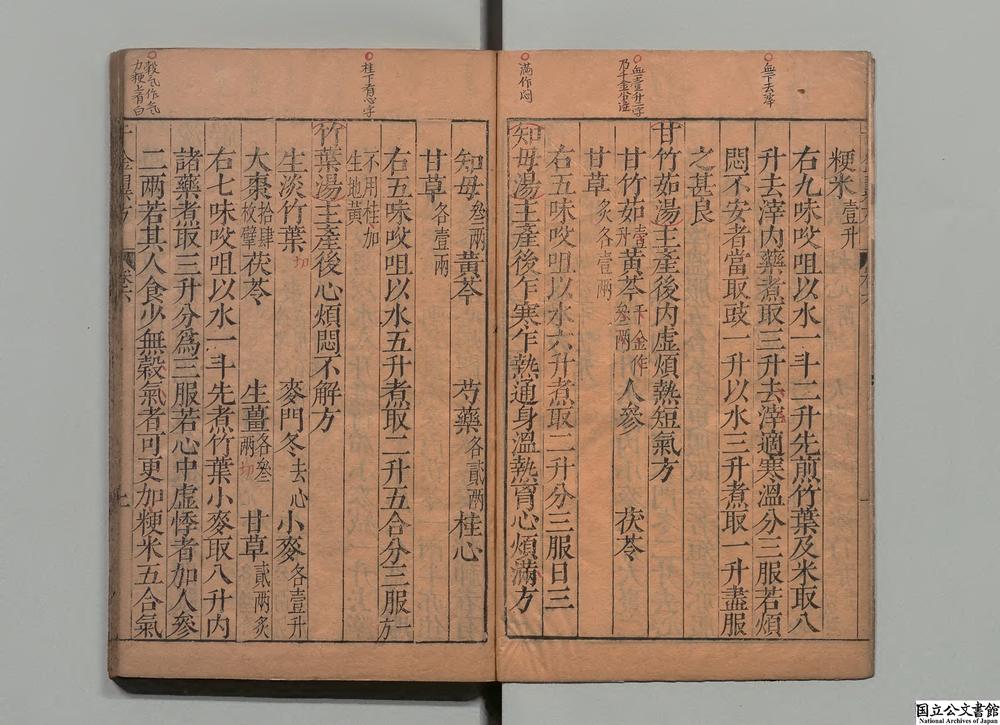 血下去滓
血壹升字
乃千金小注
滿作悶
粳米壹升
右九味㕮咀以水一斗二升先煎竹葉及米取八
升去滓內藥煮取三升去滓適寒溫分三服若煩
悶不安者當取豉一升以水三升煮取一升盡服
之甚良
甘竹茹湯主產後內虛煩熱短氣方
甘竹茹壹升黃芩千金作叁兩人參 茯苓
甘草炙各壹兩
右五味㕮咀以水六升煮取二升分三服日三
知母湯主產後乍寒乍熱通身溫熱胷心煩滿方
桂下有心字
穀氣作氣
力粳上有白
知母叁兩黃芩 芍藥各貳兩桂心
甘草各壹兩
右五味㕮咀以水五升煮取二升五合分三服一方
不用桂加
生地黃
竹葉湯主產後心煩悶不解方
生淡竹葉切 麥門冬去心小麥各壹升
大棗拾肆枚擘茯苓 生薑各叁兩切 甘草貳兩炙
右七味㕮咀以水一斗先煮竹葉小麥取八升內
諸藥煮取三升分為三服若心中虛悸者加人參
二兩若其人食少無穀氣者可更加粳米五合氣
七
国立公文書館
National Archives of Japan